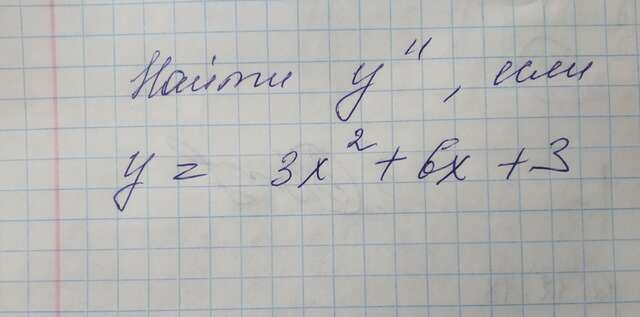 Найти y'', если
y = 3x² + 6x + 3